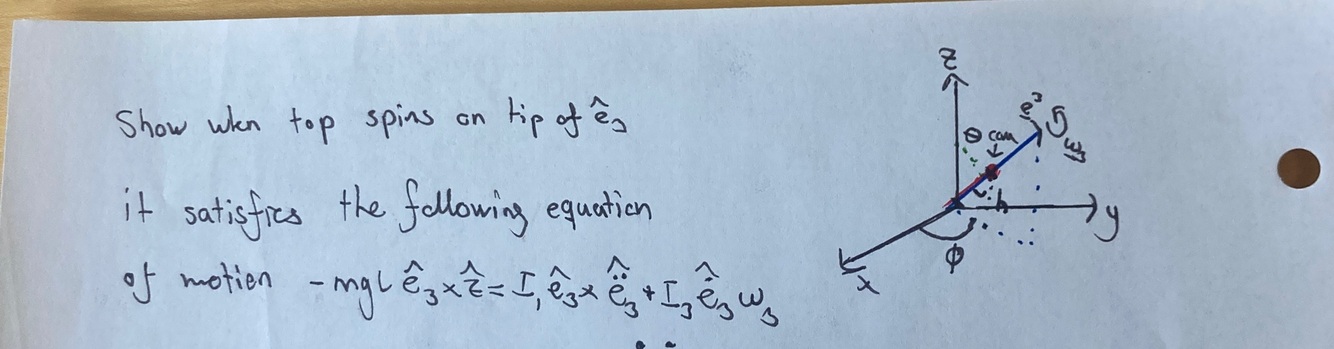 Show when top spins on tip of ê₃
it satisfies the following equation
of motion -mgl ê₃ × ẑ = I₁ ê₃ × ë̂₃ + I₃ ė̂₃ ω₃
z
θ com
e³
ω₃
h
y
φ
x